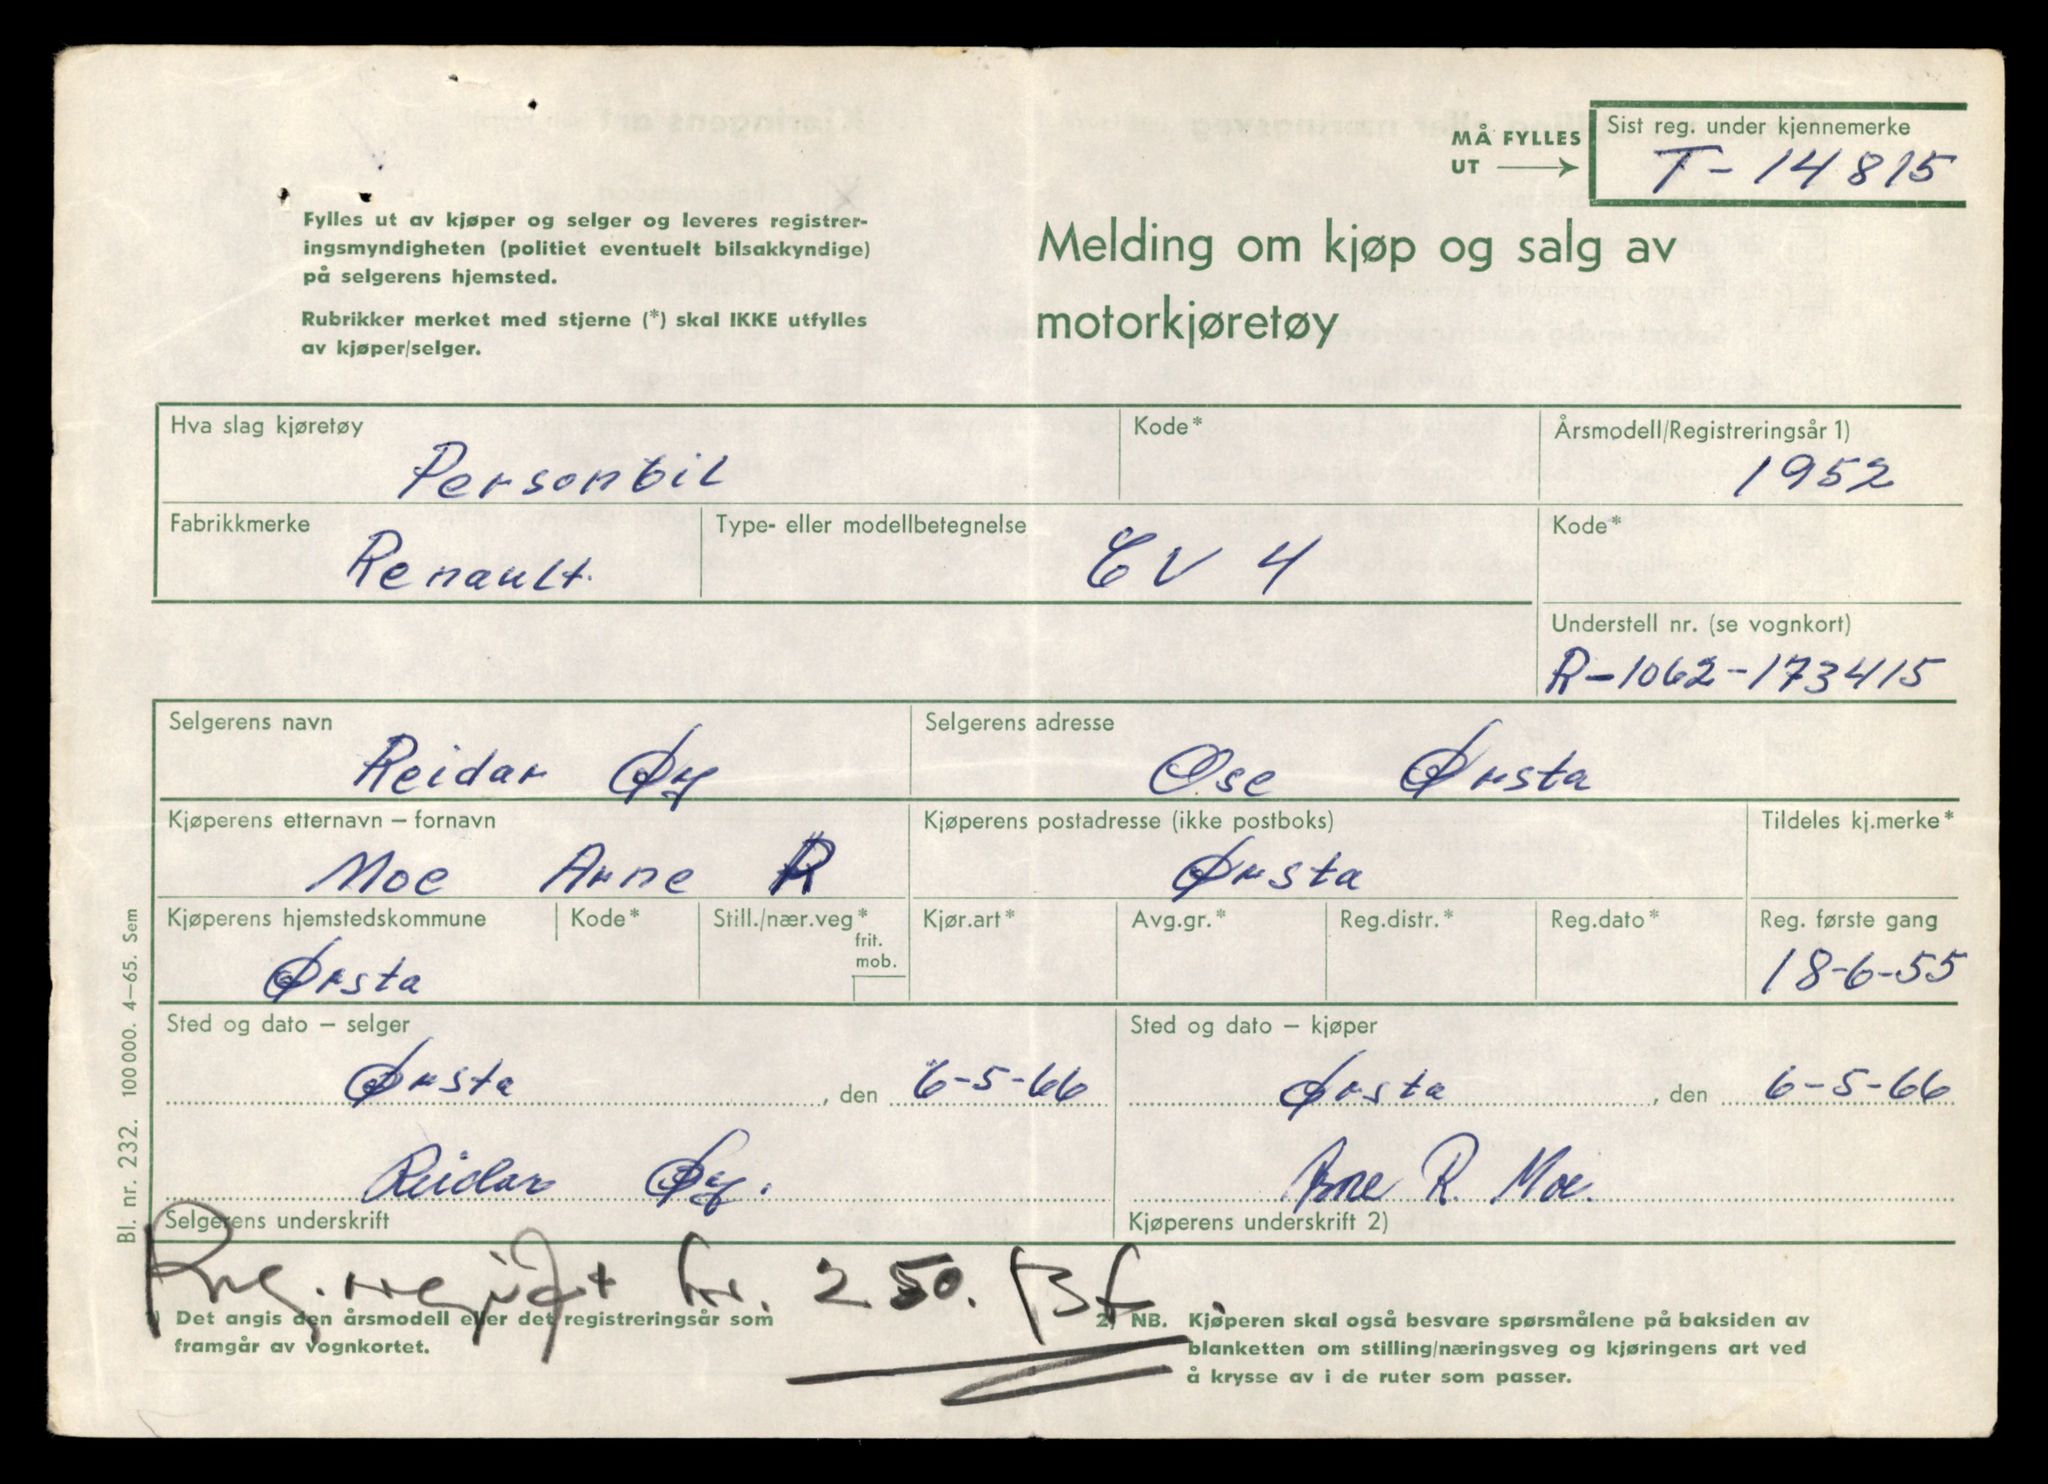 MÅ FYLLES
UT
Sist reg. under kjennemerke
T-14815
Fylles ut av kjøper og selger og leveres registrer-
ingsmyndigheten (politiet eventuelt bilsakkyndige)
på selgerens hjemsted.
Rubrikker merket med stjerne (*) skal IKKE utfylles
av kjøper/selger.
Melding om kjøp og salg av
motorkjøretøy
Hva slag kjøretøy
Personbil
Kode*
Årsmodell/Registreringsår 1)
1952
Fabrikkmerke
Renault.
Type- eller modellbetegnelse
CV 4
Kode*
Understell nr. (se vognkort)
R-1062-173415
Selgerens navn
Reidar Øy
Selgerens adresse
Ose Ørsta
Kjøperens etternavn – fornavn
Moe Arne R
Kjøperens postadresse (ikke postboks)
Ørsta
Tildeles kj.merke*
Kjøperens hjemstedskommune
Ørsta
Kode*
Still./nær.veg*
frit.
mob.
Kjør.art*
Avg.gr.*
Reg.distr.*
Reg.dato*
Reg. første gang
18-6-55
Sted og dato – selger
Ørsta, den 6-5-66
Sted og dato – kjøper
Ørsta, den 6-5-66
Reidar Øy.
Selgerens underskrift
Arne R. Moe.
Kjøperens underskrift 2)
Reg.avgift kr. 250.
) Det angis den årsmodell eller det registreringsår som
framgår av vognkortet.
2) NB. Kjøperen skal også besvare spørsmålene på baksiden av
blanketten om stilling/næringsveg og kjøringens art ved
å krysse av i de ruter som passer.
Bl. nr. 232. 100 000. 4–65. Sem